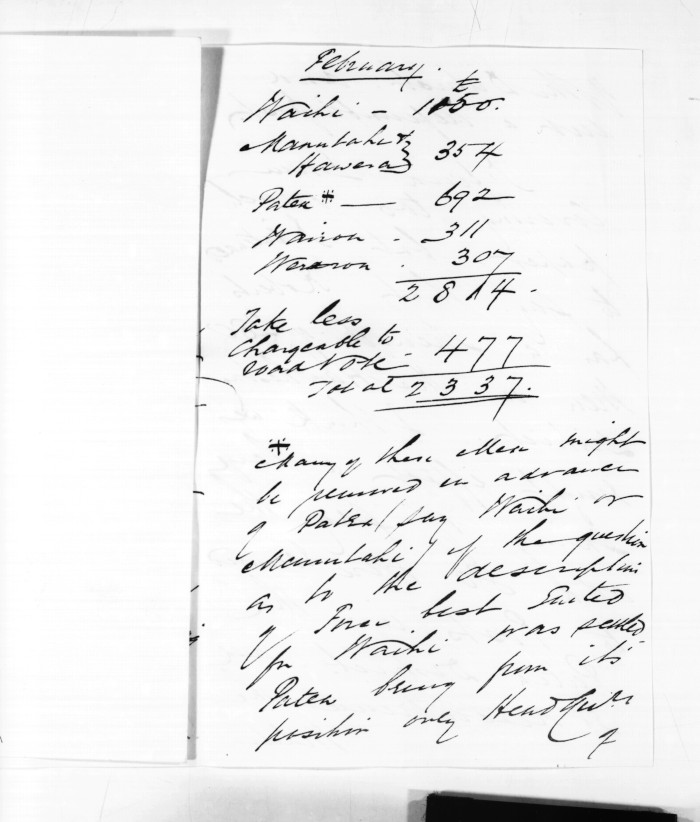 February.
£
Waihi — 1150.
Manutahi &
Hawera } 354
Patea * — 692
Wairoa . 311
Weraroa . 307
2814.
Take less
Chargeable to
road Vote - 477
Total 2337.
* Many of these Men might
be removed in advance
of Patea (say Waihi or
Manutahi) if the question
as to the description
of Force best Suited
for Waihi was settled
Patea being from its
position only Head Qurs
of